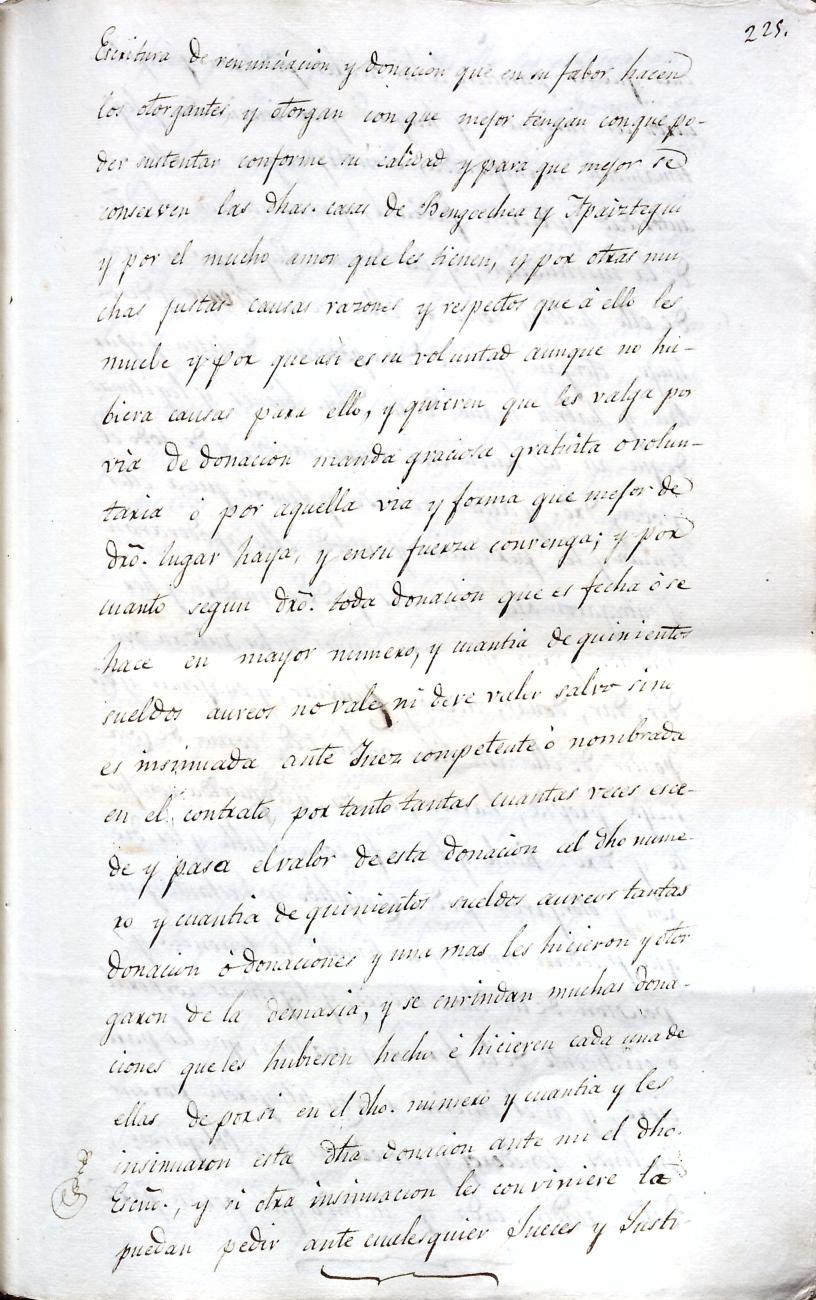 225.
Escritura de renunciacion y donacion que en su fabor hacen
los otorgantes y otorgan con que mejor tengan con que po-
der sustentar conforme su calidad y para que mejor se
conserven las dhas. casas de Bengoechea y Apaiztegui
y por el mucho amor que les tienen, y por otras mu
chas justas causas razones y respectos que à ello les
muebe y por que asi es su voluntad aunque no hu-
biera causas para ello, y quieren que les valga por
via de donacion manda graciosa gratuita o volun-
taria ò por aquella via y forma que mejor de
dro. lugar haya, y en su fuerza convenga; y por
cuanto segun dro. toda donacion que es fecha ò se
hace en mayor numero, y cuantia de quinientos
sueldos aureos no vale ni deve valer salvo sino
es insinuada ante Juez competente ò nombrada
en el contrato, por tanto tantas cuantas veces esce-
de y pasa el valor de esta donacion al dho nume-
ro y cuantia de quinientos sueldos aureos tantas
donacion ò donaciones y una mas les hicieron y otor
garon de la demasia, y se entindan muchas dona-
ciones que les hubiesen hecho è hicieren cada una de
ellas de por si en el dho. numero y cuantia y les
insinuaron esta dha donicion ante mi el dho.
Escno., y si otra insinuacion les conviniere la
puedan pedir ante cualesquier Jueces y Justi-